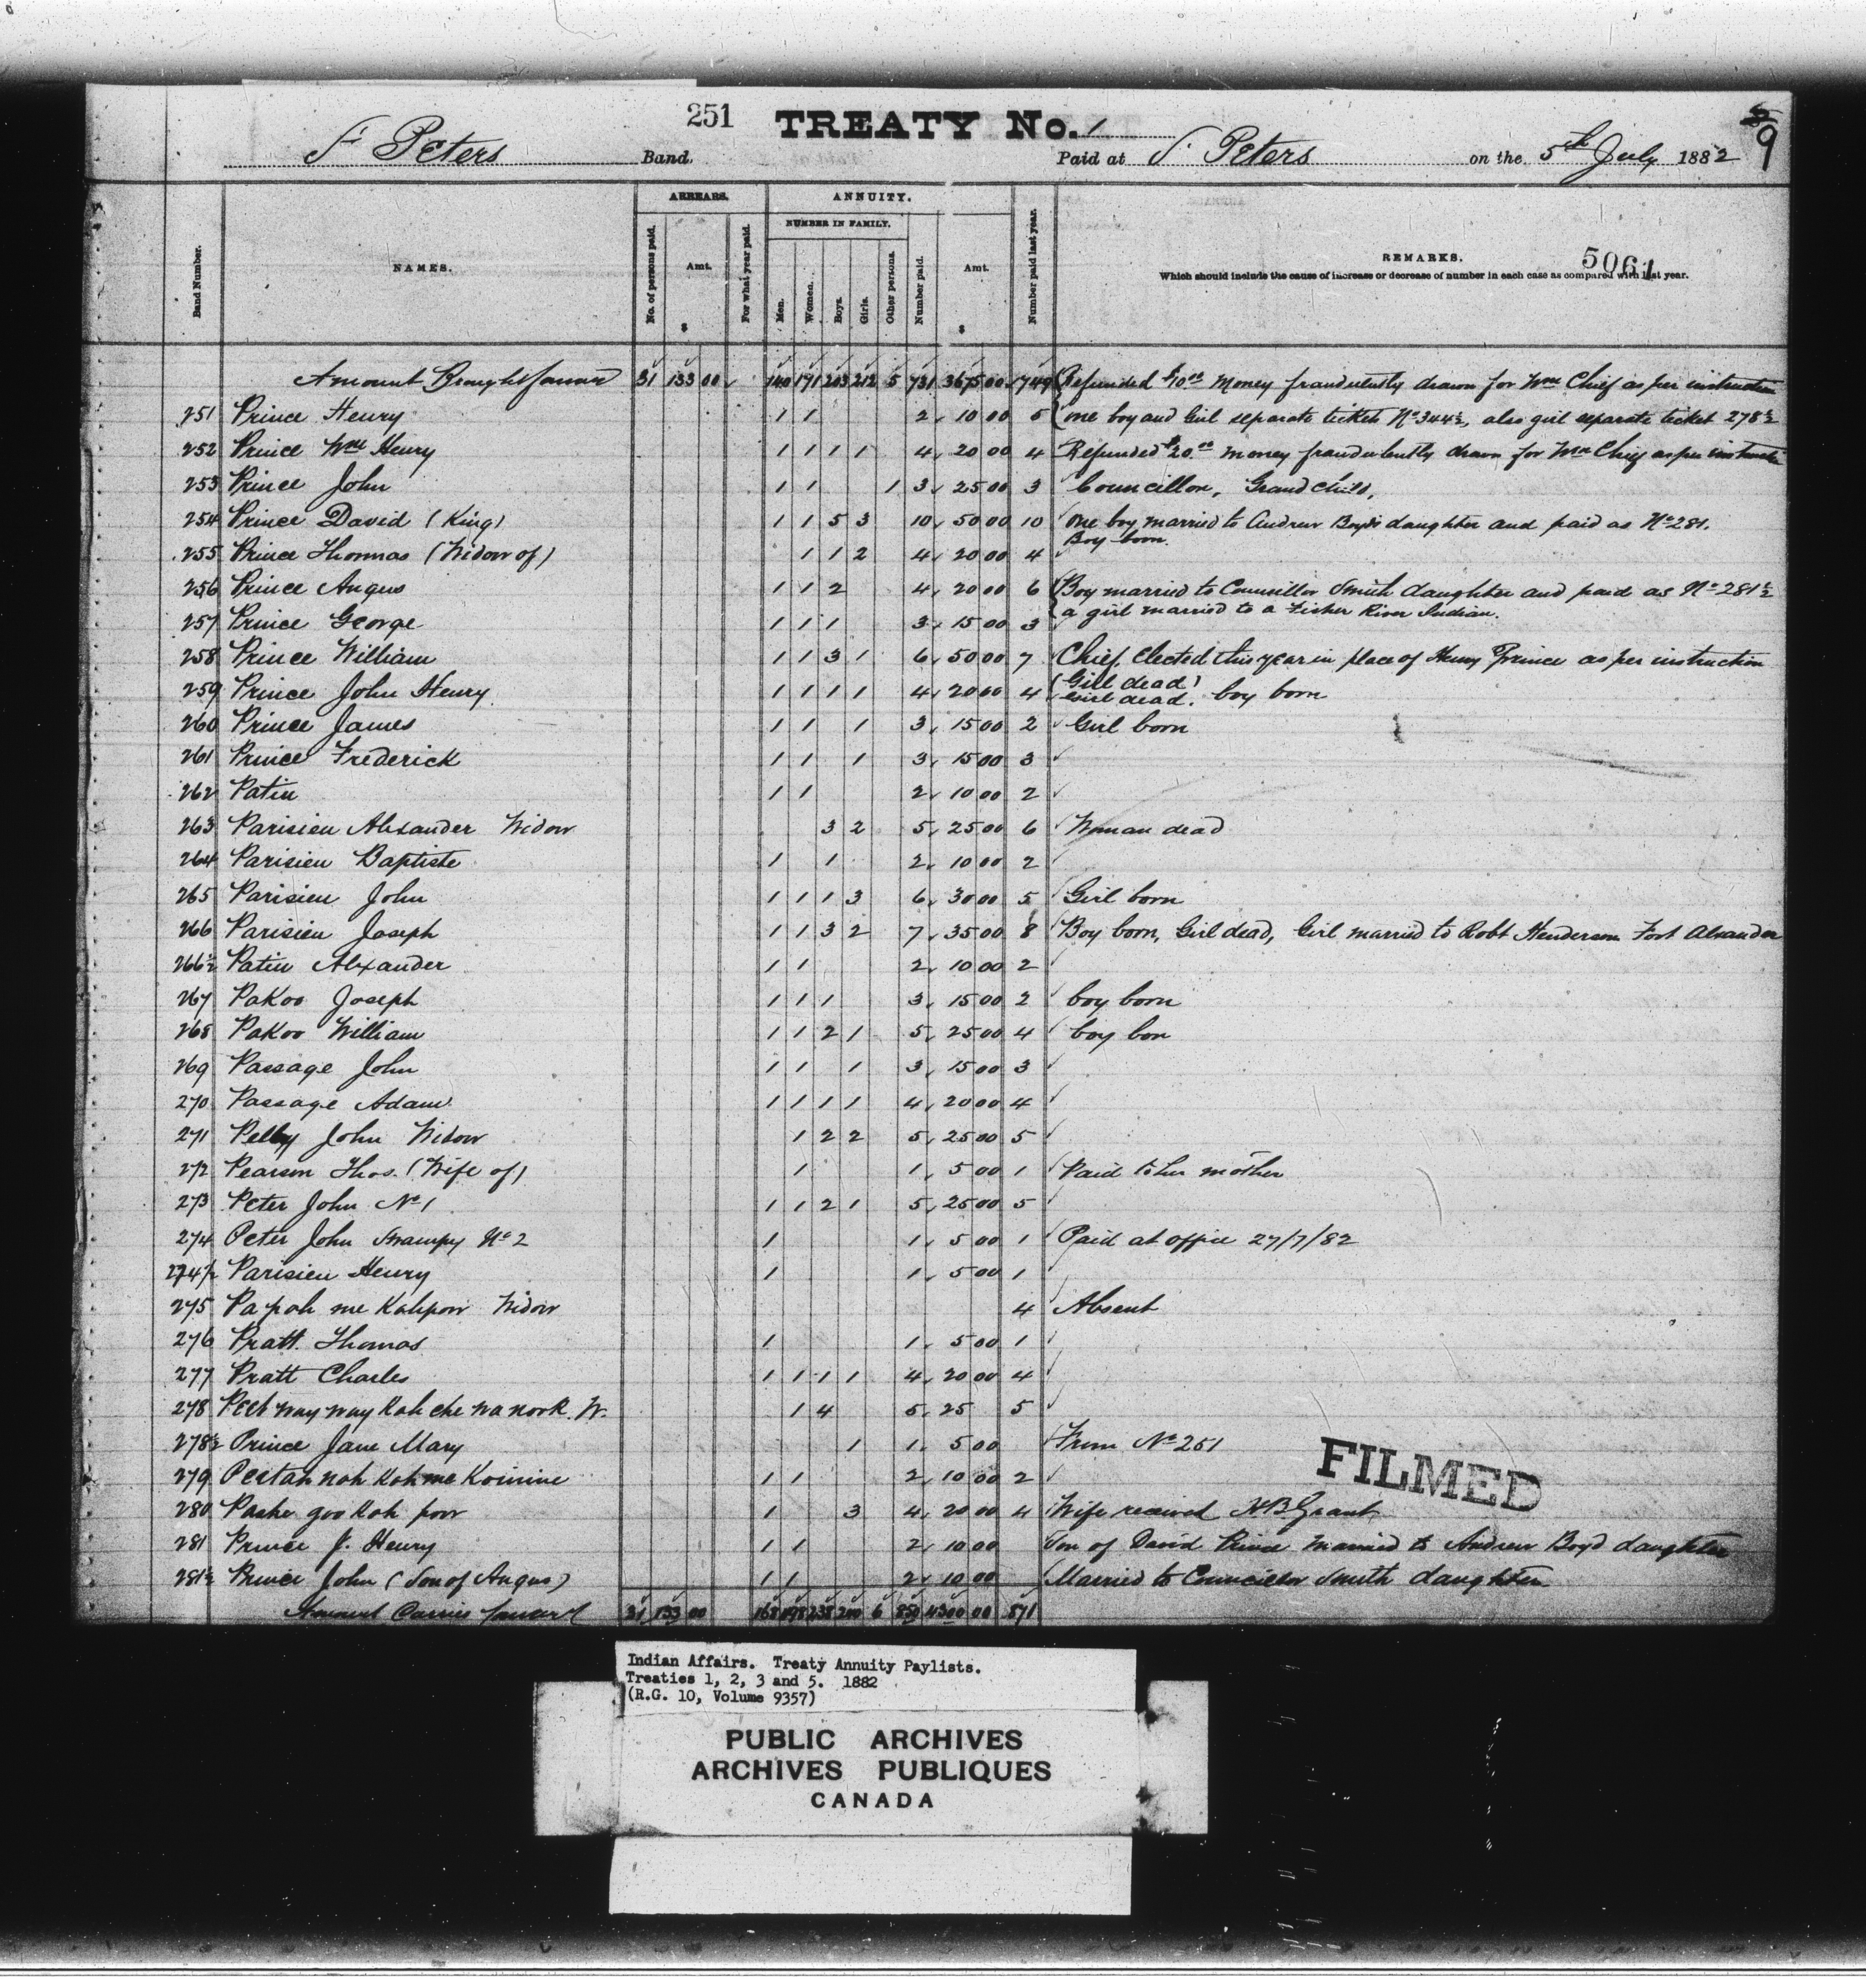 251 TREATY No. 1 9
St Peters Band. Paid at St. Peters on the 5th July 1882
ARREARS. ANNUITY.
NUMBER IN FAMILY.
Band Number. NAMES. No. of persons paid. Amt. $ For what year paid. Men. Women. Boys. Girls. Other persons. Number paid. Amt. $ Number paid last year. REMARKS. 5061
Which should include the cause of increase or decrease of number in each case as compared with last year.
Amount Brought forward 31 133 00 140 171 203 212 5 731 3675 00 749 Refunded $10.00 money fraudulently drawn for Wm Chief as per instruction
251 Prince Henry 1 1 2 10 00 5 one boy and Girl separate tickets No 344½, also girl separate ticket 278½
252 Prince Wm Henry 1 1 1 1 4 20 00 4 Refunded $20.00 money fraudulently drawn for Wm Chief as per instruction
253 Prince John 1 1 1 3 25 00 3 Councillor, Grand child,
254 Prince David (King) 1 1 5 3 10 50 00 10 one boy married to Andrew Boyds daughter and paid as No 281.
Boy born.
255 Prince Thomas (Widow of) 1 1 2 4 20 00 4
256 Prince Angus 1 1 2 4 20 00 6 Boy married to Councillor Smith daughter and paid as No 281½
a girl married to a Fisher River Indian.
257 Prince George 1 1 1 3 15 00 3
258 Prince William 1 1 3 1 6 50 00 7 Chief, Elected this year in place of Henry Prince as per instruction
(Girl dead)
259 Prince John Henry 1 1 1 1 4 20 00 4 Girl dead. boy born
260 Prince James 1 1 1 3 15 00 2 Girl born
261 Prince Frederick 1 1 1 3 15 00 3
262 Patin 1 1 2 10 00 2
263 Parisien Alexander Widow 3 2 5 25 00 6 Woman dead
264 Parisien Baptiste 1 1 2 10 00 2
265 Parisien John 1 1 1 3 6 30 00 5 Girl born
266 Parisien Joseph 1 1 3 2 7 35 00 8 Boy born, Girl dead, Girl married to Robt Henderson Fort Alexander
266½ Patin Alexander 1 1 2 10 00 2
267 Pakoo Joseph 1 1 1 3 15 00 2 boy born
268 Pakoo William 1 1 2 1 5 25 00 4 boy bon
269 Passage John 1 1 1 3 15 00 3
270 Passage Adam 1 1 1 1 4 20 00 4
271 Pelly John Widow 1 2 2 5 25 00 5
272 Pearson Thos. (Wife of) 1 1 5 00 1 Paid to her mother
273 Peter John No 1 1 1 2 1 5 25 00 5
274 Peter John Swampy No 2 1 1 5 00 1 Paid at office 27/7/82
274½ Parisien Henry 1 1 5 00 1
275 Pa pah me Kahpow Widow 4 Absent
276 Pratt Thomas 1 1 5 00 1
277 Pratt Charles 1 1 1 1 4 20 00 4
278 Peet way way Kah che wa nook. W. 1 4 5 25 5
278½ Prince Jane Mary 1 1 5 00 From No 251
279 Peetah nah Kah me Koinine 1 1 2 10 00 2
280 Pashe goo Kah pow 1 3 4 20 00 4 Wife received H B Grant
281 Prince J. Henry 1 1 2 10 00 Son of David Prince married to Andrew Boyd daughter
281½ Prince John (Son of Angus) 1 1 2 10 00 Married to Councillor Smith daughter
Amount Carried forward 31 133 00 168 198 238 240 6 850 4300 00 871
FILMED
Indian Affairs. Treaty Annuity Paylists.
Treaties 1, 2, 3 and 5. 1882
(R.G. 10, Volume 9357)
PUBLIC ARCHIVES
ARCHIVES PUBLIQUES
CANADA